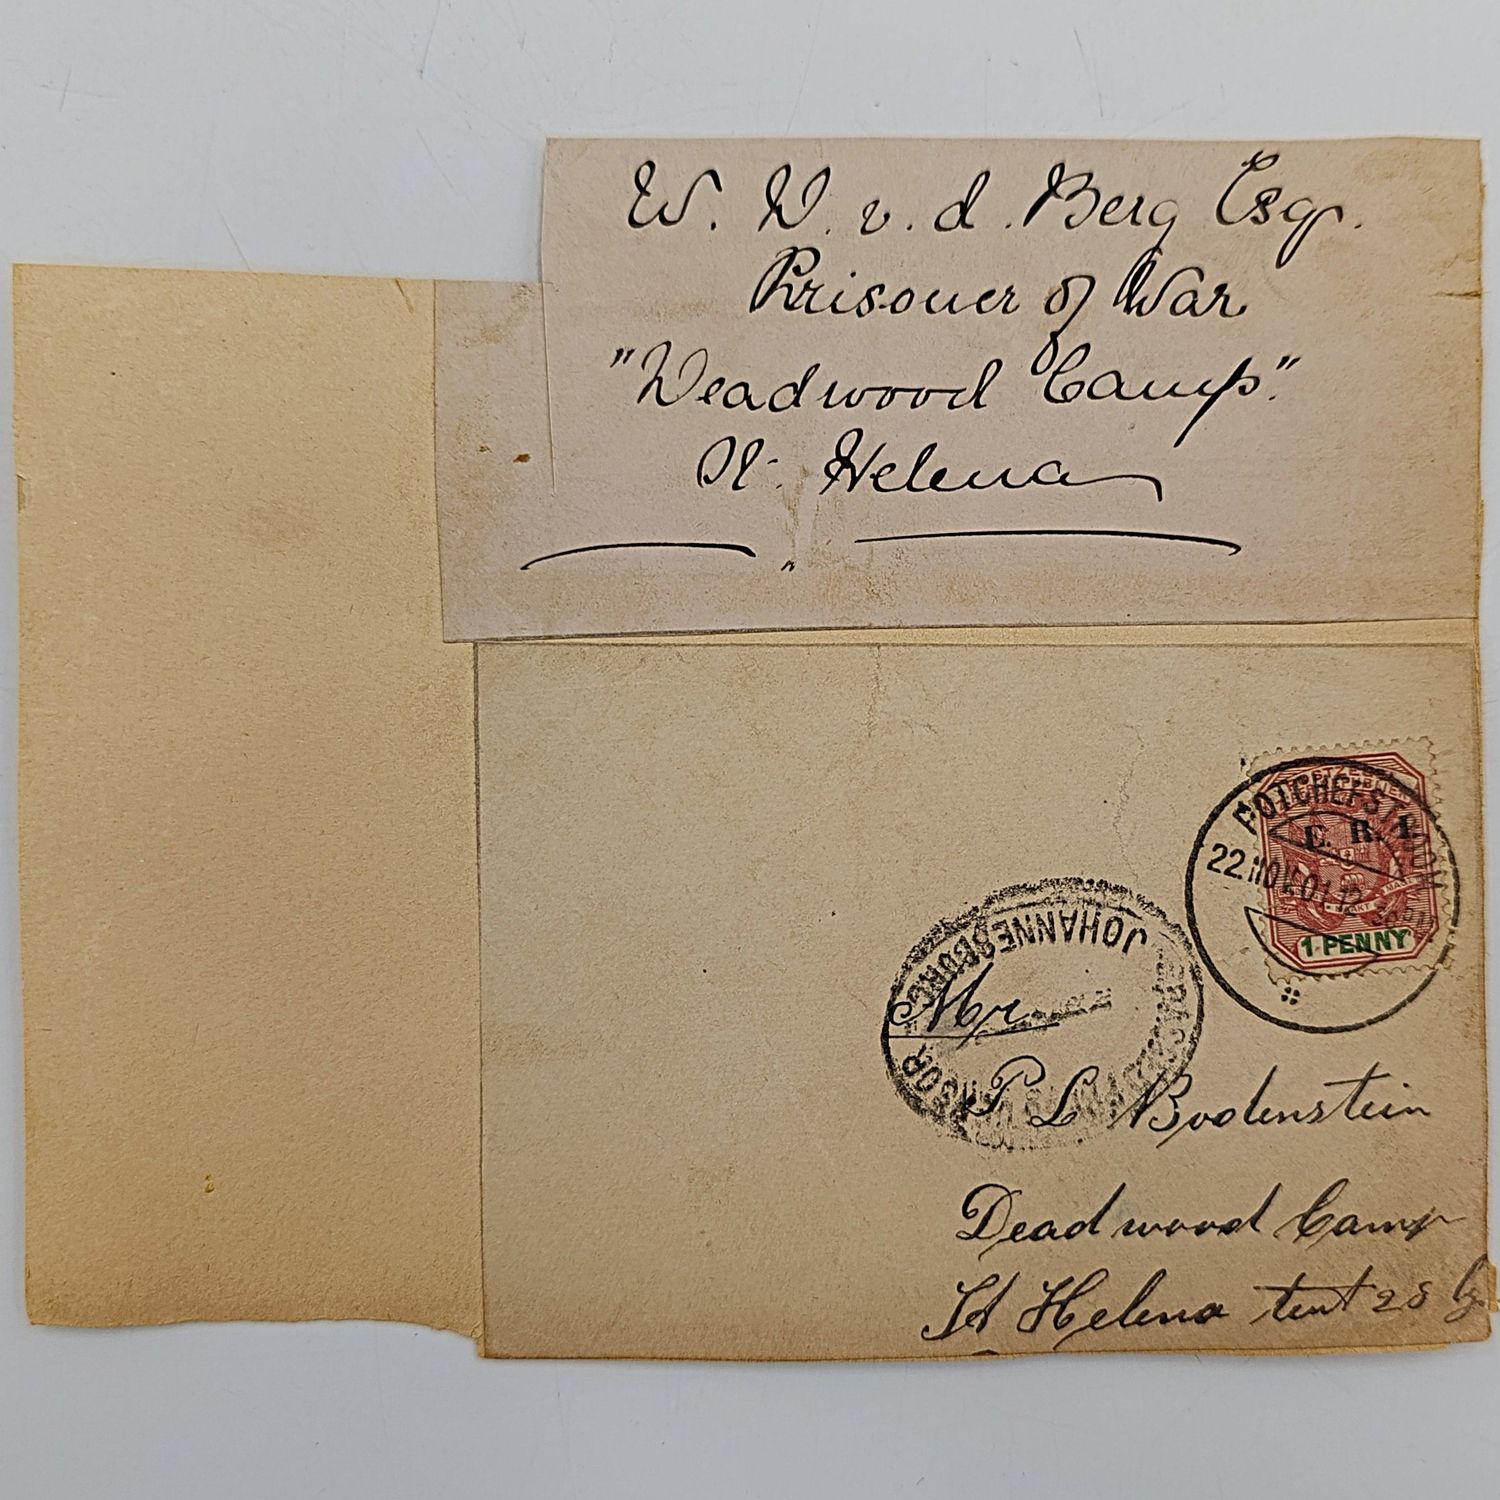 W. D. v. d. Berg Esqr.
Prisoner of War
"Deadwood Camp"
St. Helena
POTCHEFSTROOM
22.NOV.01.12
E. R. I.
1 PENNY
JOHANNESBURG
Mr
P L Bodenstein
Deadwood Camp
St Helena tent 28